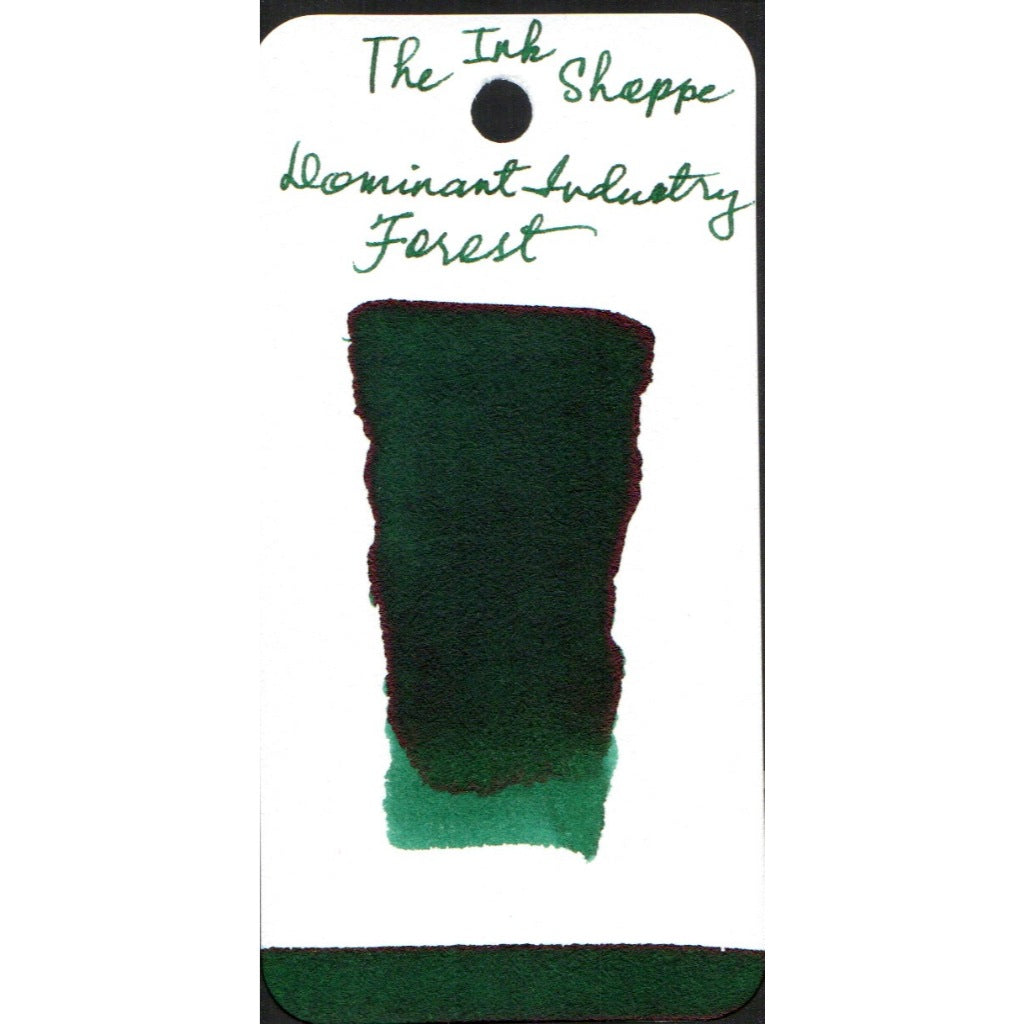 The Ink Shoppe
Dominant Industry
Forest